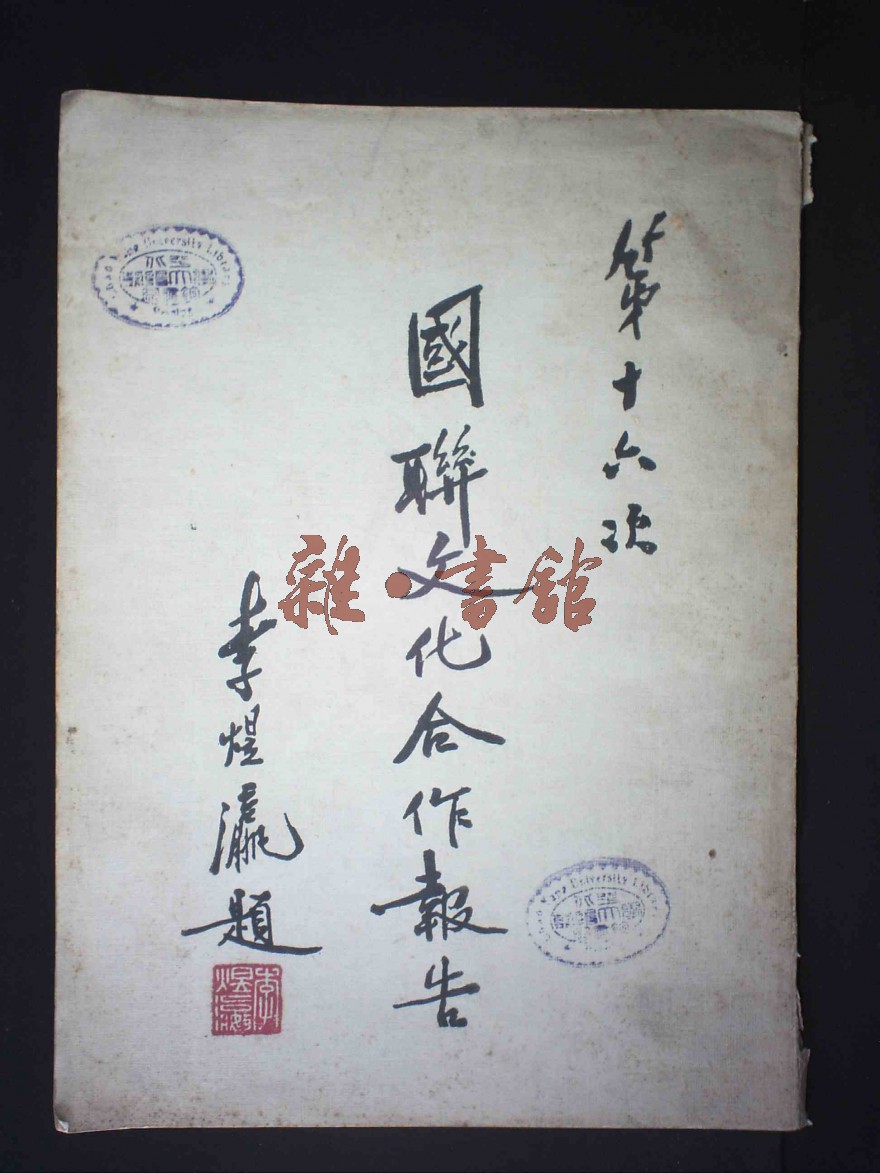 第十六次
國聯文化合作報告
李煜瀛題
李煜瀛
雜·書館
University Library
University Library